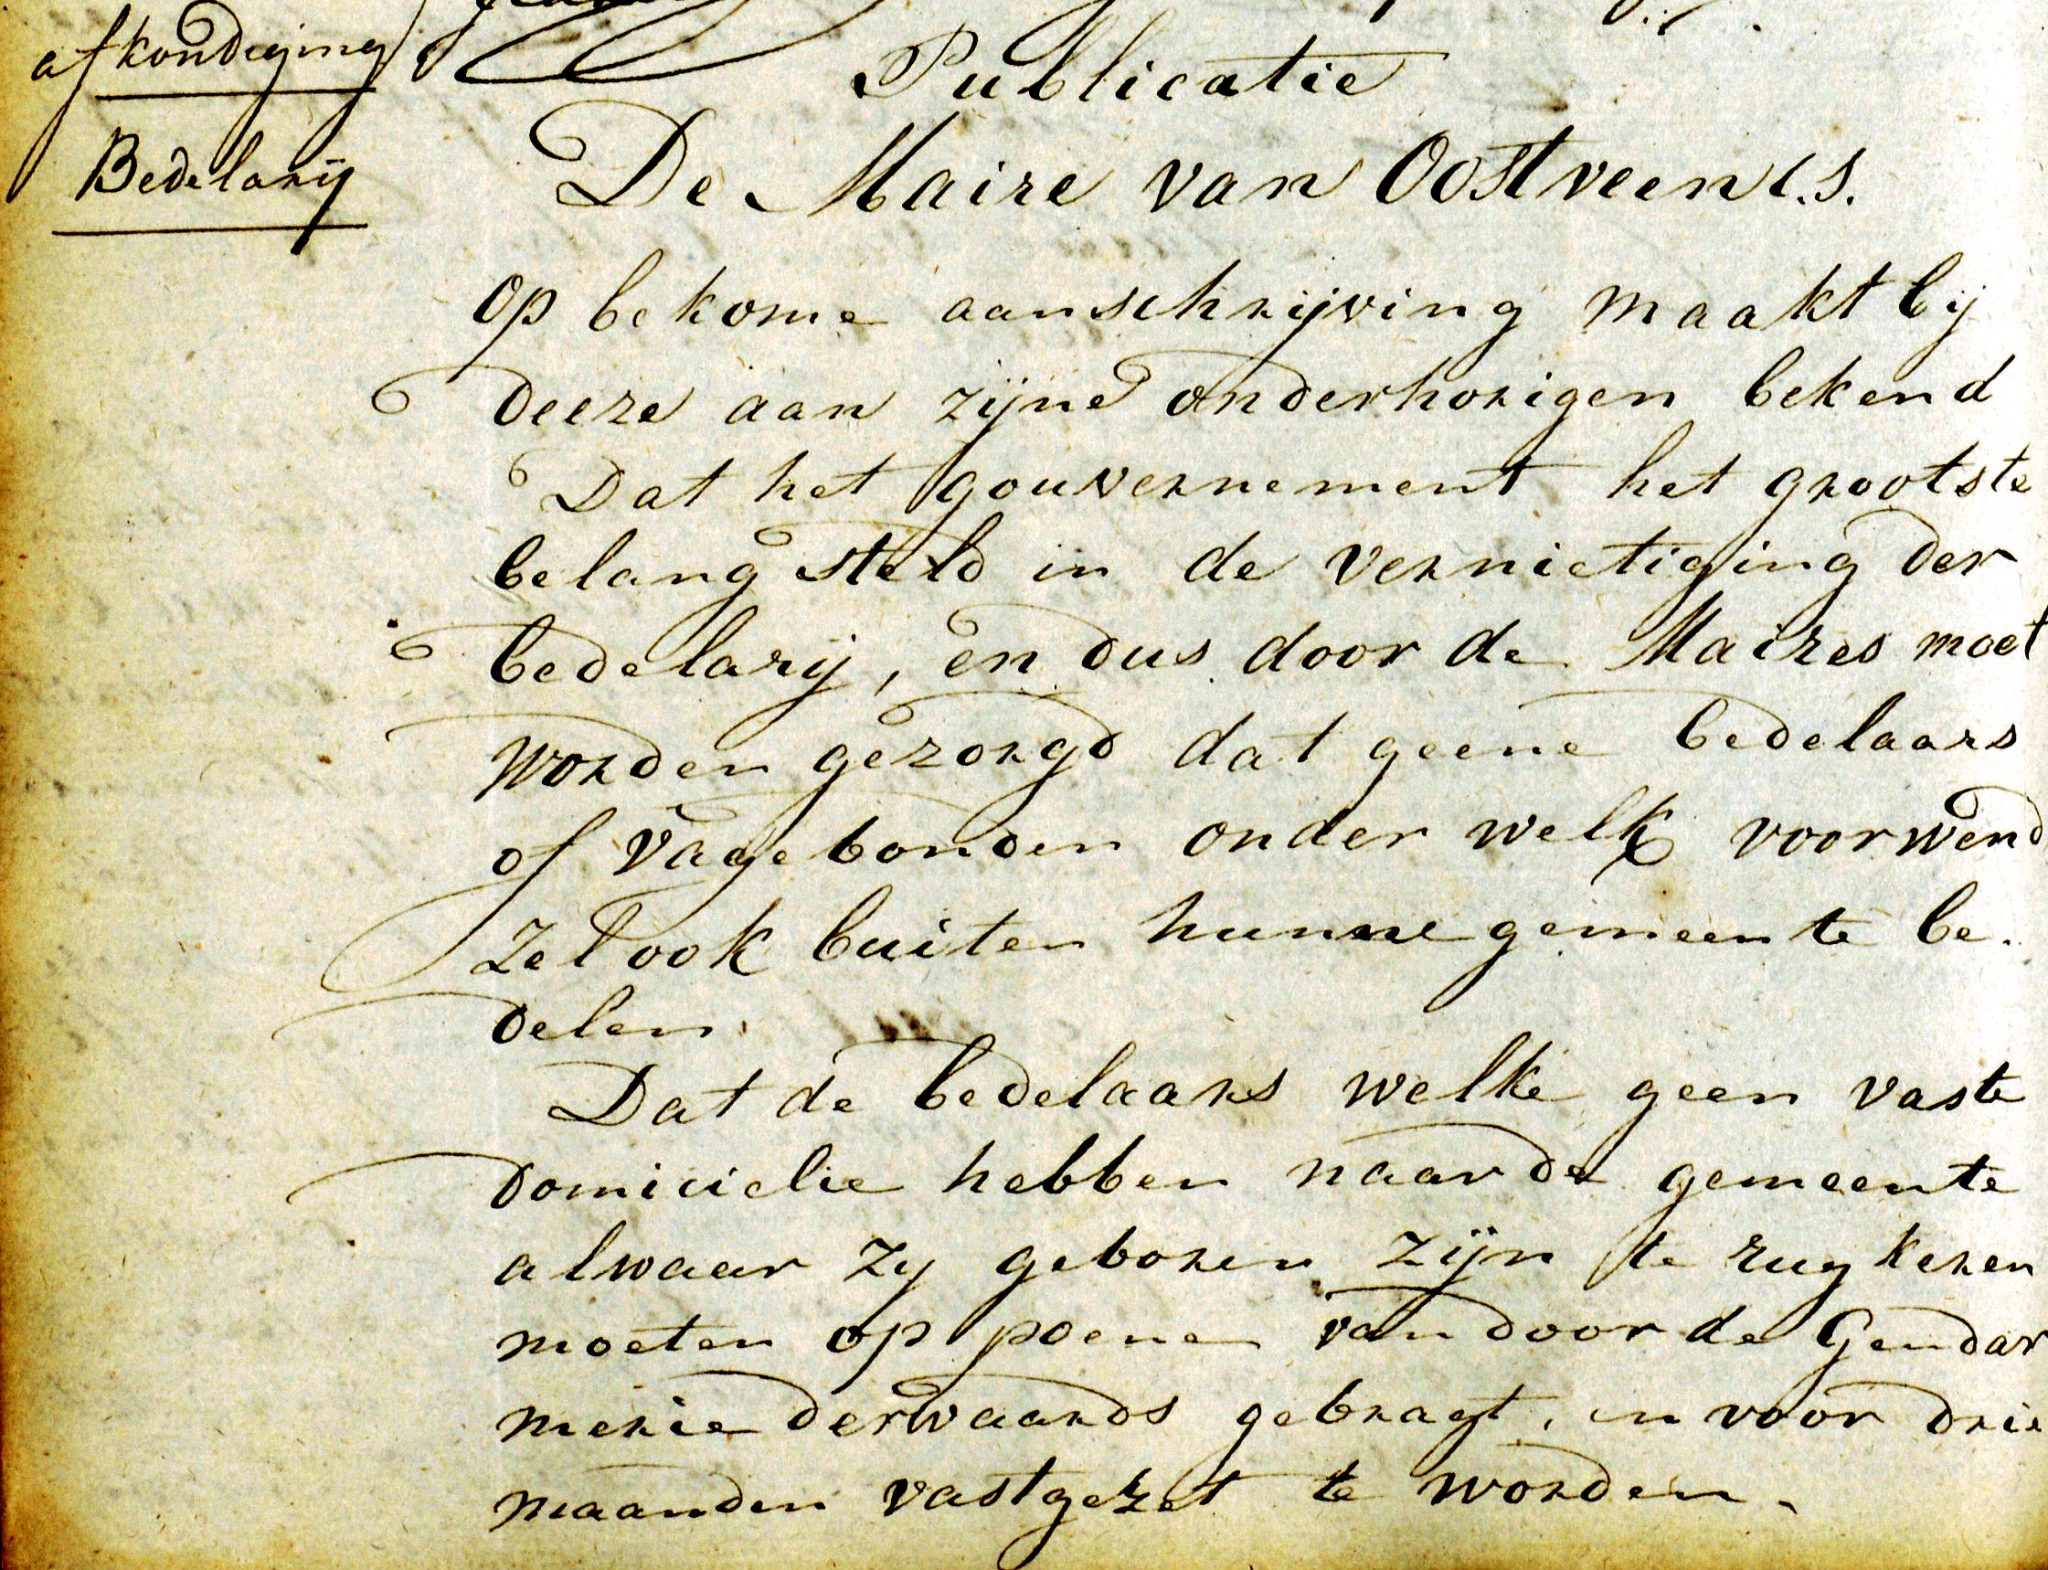 afkondiging
Bedelarij
Publicatie
De Maire van Oostveen c.s.
op bekome aanschrijving maakt bij
deeze aan zijne onderhorigen bekend
Dat het gouvernement het grootste
belang steld in de vernietiging der
bedelarij, en dus door de Maires moet
worden gezorgd dat geene bedelaars
of vagebonden onder welk voorwend
zel ook buiten hunne gemeente be.
delen.
Dat de bedelaars welke geen vaste
domicielie hebben naar de gemeente
alwaar zy geboren zijn te rug keren
moeten op poene van door de Gendar
merie derwaards gebragt, en voor drie
maanden vastgezet te worden.